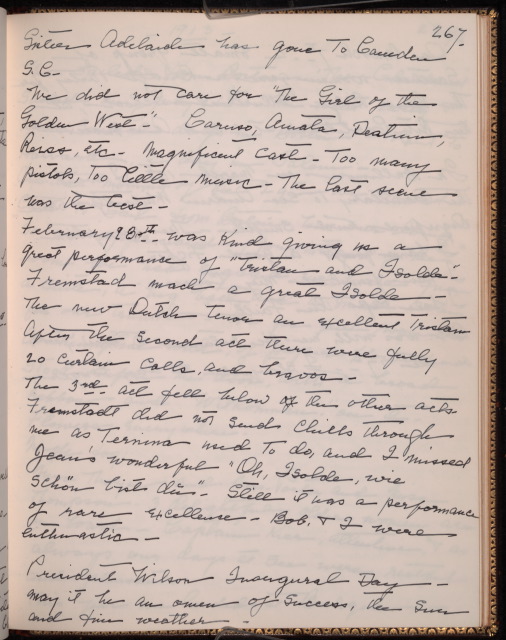 267.
Sister Adelaide has gone To Camden
S.C.
We did not care for "The Girl of the
Golden West". Caruso, Amato, Destinn,
Reiss, etc. Magnificent Cast - Too many
pistols, Too little music - The last scene
was the best -
February 28th was Kind giving us a
great performance of "Tristan and Isolde".
Fremstad made a great Isolde -
The new Dutch Tenor an excellent Tristan
After the second act there were fully
20 Curtain Calls, and bravos -
The 3rd act fell below of the other acts
Fremstadt did not send chills through
me as Ternina used to do, and I missed
Jean's wonderful "Oh, Isolde, wie
schön bist du". Still it was a performance
of rare excellence - Bob. & I were
Enthusiastic -
President Wilson Inaugural Day -
may it be an omen of Success, the Sun
and fine weather -